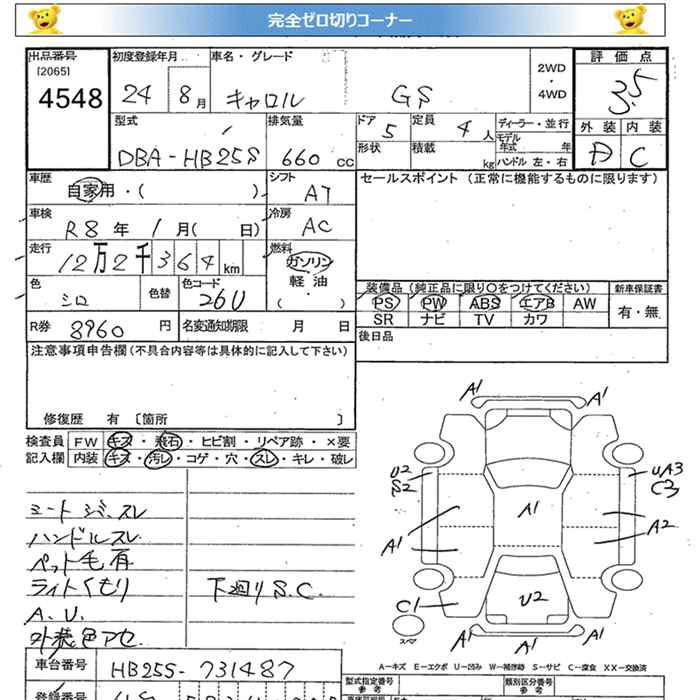 完全ゼロ切りコーナー
出品番号 初度登録年月 車名・グレード 2WD・4WD 評価点
[2065] 4548 24 8月 キャロル GS 3.5
型式 排気量 ドア 5 定員 4人 ディーラー・並行 外装 内装
DBA-HB25S 660cc 形状 積載 kg モデル年式 年 ハンドル 左・右 A C
車歴 自家用・( ) シフト AT セールスポイント(正常に機能するものに限ります)
車検 R8年 1月( 日) 冷房 AC
走行 12万2千364km 燃料 ガソリン 軽油 ( ・ )
色 シロ 色替 色コード 26U 装備品(純正品に限り○をつけてください) 新車保証書
PS PW ABS エアB AW 有・無
R券 8960円 名変通知期限 月 日 SR ナビ TV カワ
注意事項申告欄(不具合内容等は具体的に記入して下さい) 後日品
修復歴 有 〔箇所 〕
検査員 FW キズ・飛石・ヒビ割・リペア跡・×要
記入欄 内装 キズ・汚レ・コゲ・穴・スレ・キレ・破レ
A1 A1
U2 S2 UA3 C3
A1 A1 A2
C1 U2
スペア A1 A1
ハンドルスレ
ペット毛有
ライトくもり 下廻りS.C.
A.U.
外装色アセ
A-キズ E-エクボ U-凹み W-補修跡 S-サビ C-腐食 XX-交換済
車台番号 HB25S-731487
型式指定番号 参考 類別区分番号 参考
登録番号